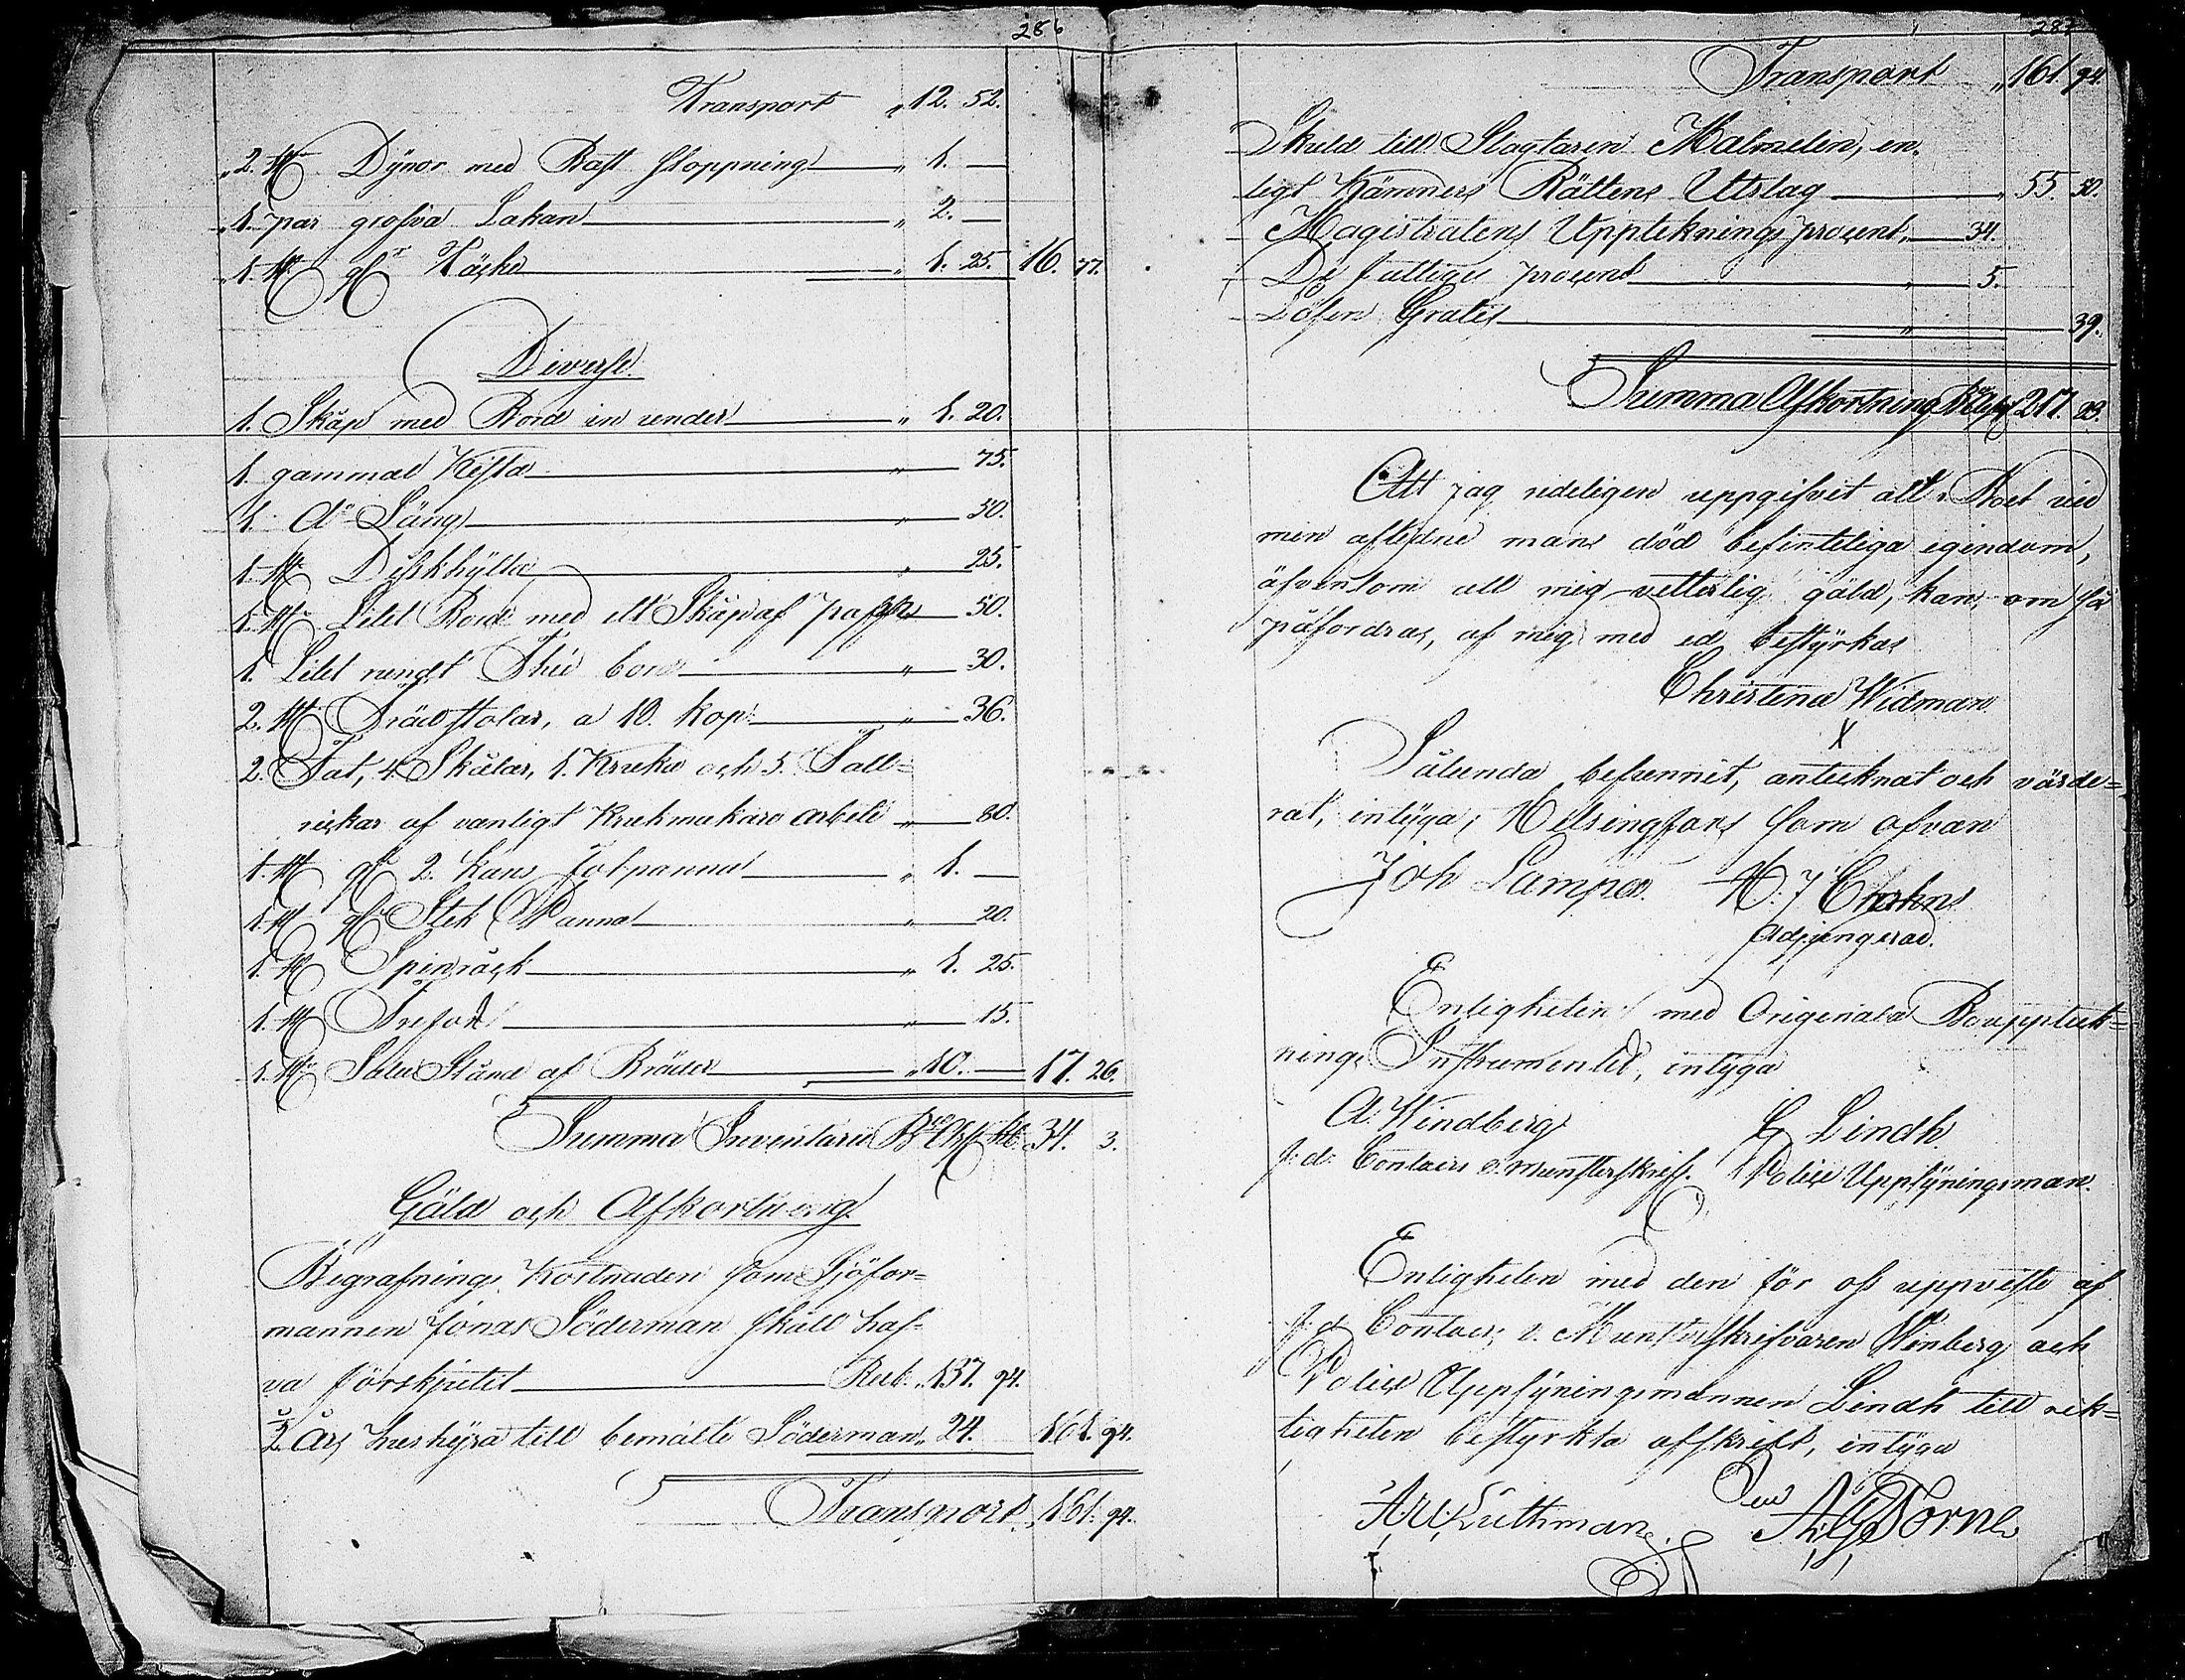 286
Transport „ 12. 52.
„ 2. st Dynor med Bast stoppning „ 1. —
„ 1. par grofva Lakan „ 2. —
„ 1. st gl Täcke „ 1. 25. 16. 77.
Diverse
1. Skåp med Bord in under „ 1. 20.
1. gammal Kista „ 75.
1. do Säng „ 50.
1. st Diskhylla „ 25.
1. st Litet Bord med ett Skåp af papp „ 50.
1. Litet rundt Thé bord „ 30.
2. st Träd stolar, a 18. kop „ 36.
2. Fat, 4. Skålar, 1. Kruka och 5. Tall=
rickar af vanligt Krukmakare arbete „ 80.
1. st gl 2. kans Jernpanna „ 1. —
1. st gl Stek Panna „ 20.
1. st Spinråck „ 1. 25.
1. st Trefot „ 15.
1. st Salu Stånd af Bräder „ 10. — 17. 26.
Summa Inventarii Bco 34. 3.
Gäld och Afkortning
Begrafnings Kostnaden som Sjöfor=
mannen Jonas Söderman skall haf=
va förskjutit Rub. „ 137. 94.
½ Års hushyra till bemälte Söderman „ 24. 161. 94.
Transport „ 161. 94.
287
Transport „ 161. 94.
Skuld till Slagtaren Malmelin, en=
ligt Kämners Rättens Utslag „ 55. 50.
Magistratens Uppteknings procent „ 34.
De fattiges procent „ 5.
Lösen Gratis „ 39.
Summa Afkortning 217. 83.
Att jag redeligen uppgifvit all i Boet vid
min aflidne mans död befinteliga egendom,
äfvensom all mig vetterlig gäld, kan, om så
påfordras, af mig med ed bestyrkas
Christina Widman
X
Sålunda befunnit, antecknat och värde=
rat, intyga; Helsingfors som ofvan
Joh Lampa.
Adjungerad.
Enligheten med Originala Bouppteck=
nings Instrumentet, intyga
A. Windberg G Lindh
f. d. Contoirs o. munsterskrif. Police Uppsyningsman.
Enligheten med den för oss uppviste af
f. d. Contoirs o. Munsterskrifvaren Winberg och
Police Uppsyningsmannen Lindh till rik=
tigheten bestyrkta afskrift, intyga
A. W. Luthman